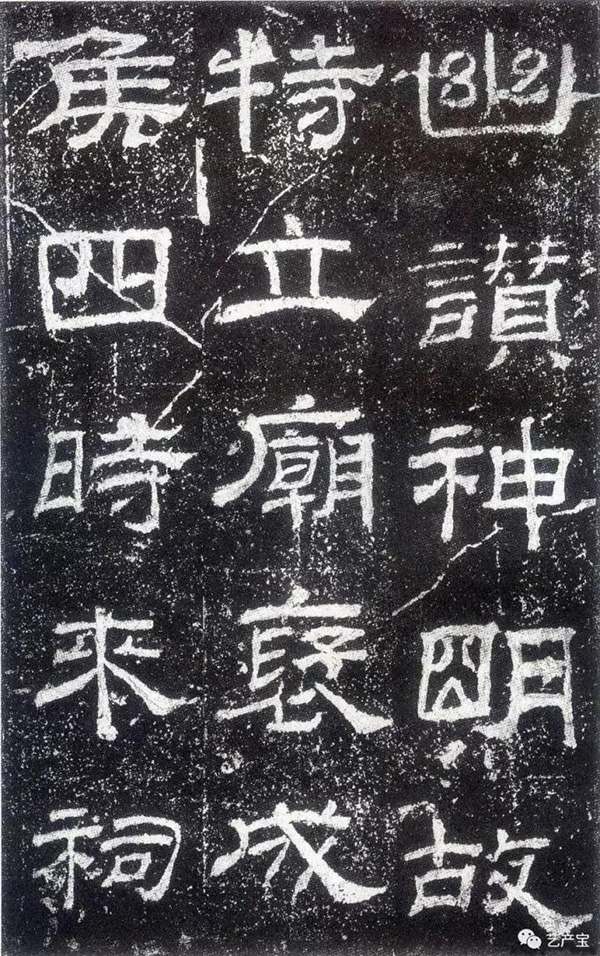 幽讃神明故
特立廟褒成
侯四時來祠
艺产宝